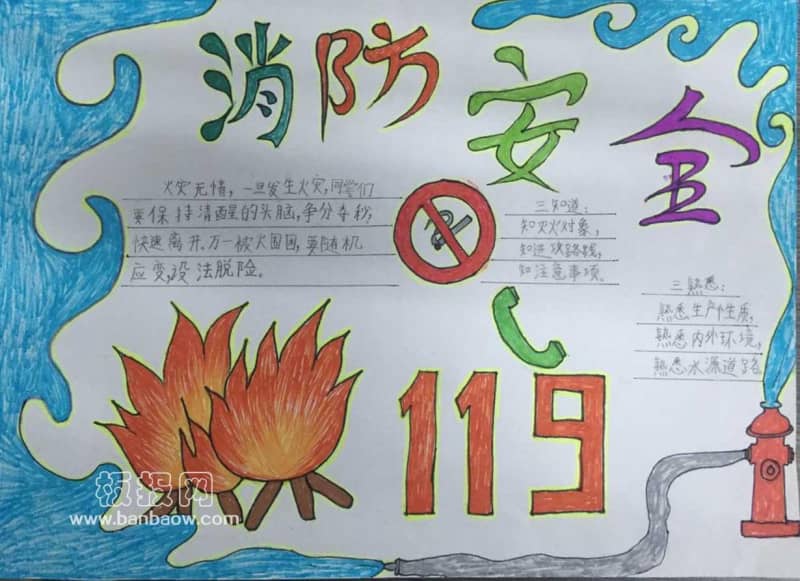 消防安全
火灾无情，一旦发生火灾，同学们
要保持清醒的头脑，争分夺秒，
快速离开，万一被火围困，要随机
应变，设法脱险。
三知道：
知灭火对象，
知进攻路线，
知注意事项。
三熟悉：
熟悉生产性质，
熟悉内外环境，
熟悉水源道路
119
板报网
www.banbaow.com